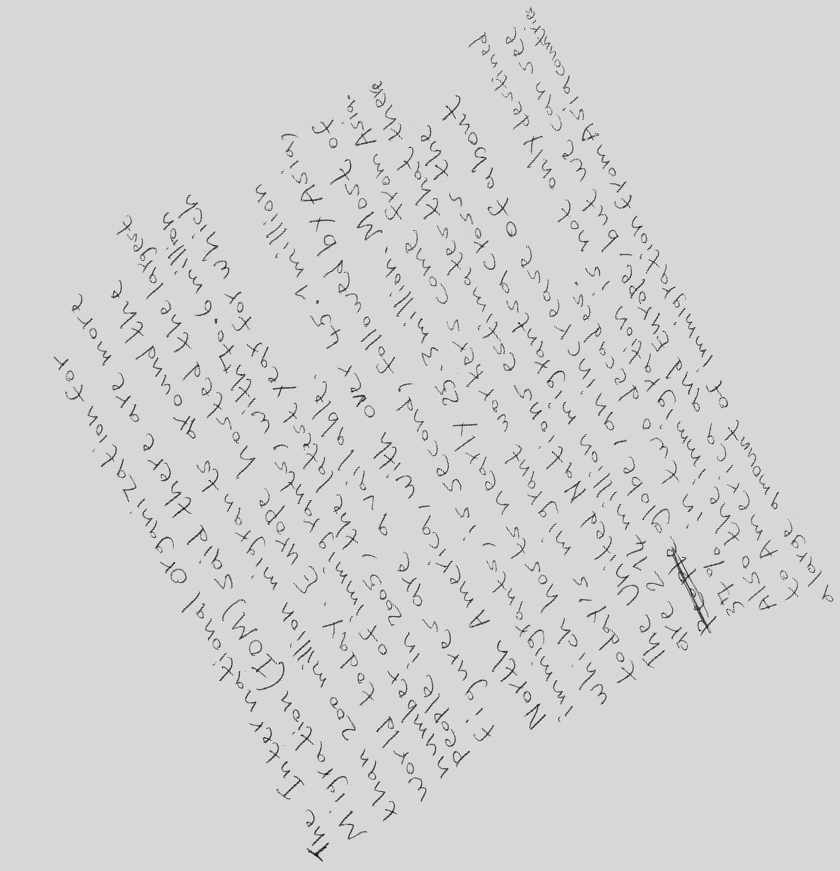 The International Organization for
Migration (IOM) said there are more
than 200 million migrants around the
world today. Europe hosted the largest
number of immigrants, with 70.6 million
people in 2005, the latest year for which
figures are available.
North America, with over 45.1 million
immigrants, is second, followed by Asia,
which hosts nearly 25.3 million. Most of
today's migrant workers come from Asia.
The United Nations estimates that there
are 214 million migrants across the
globe, an increase of about
37% in two decades.
Also the immigration is not only destined
to America and Europe, but we can see
a large amount of immigration from Asia countries